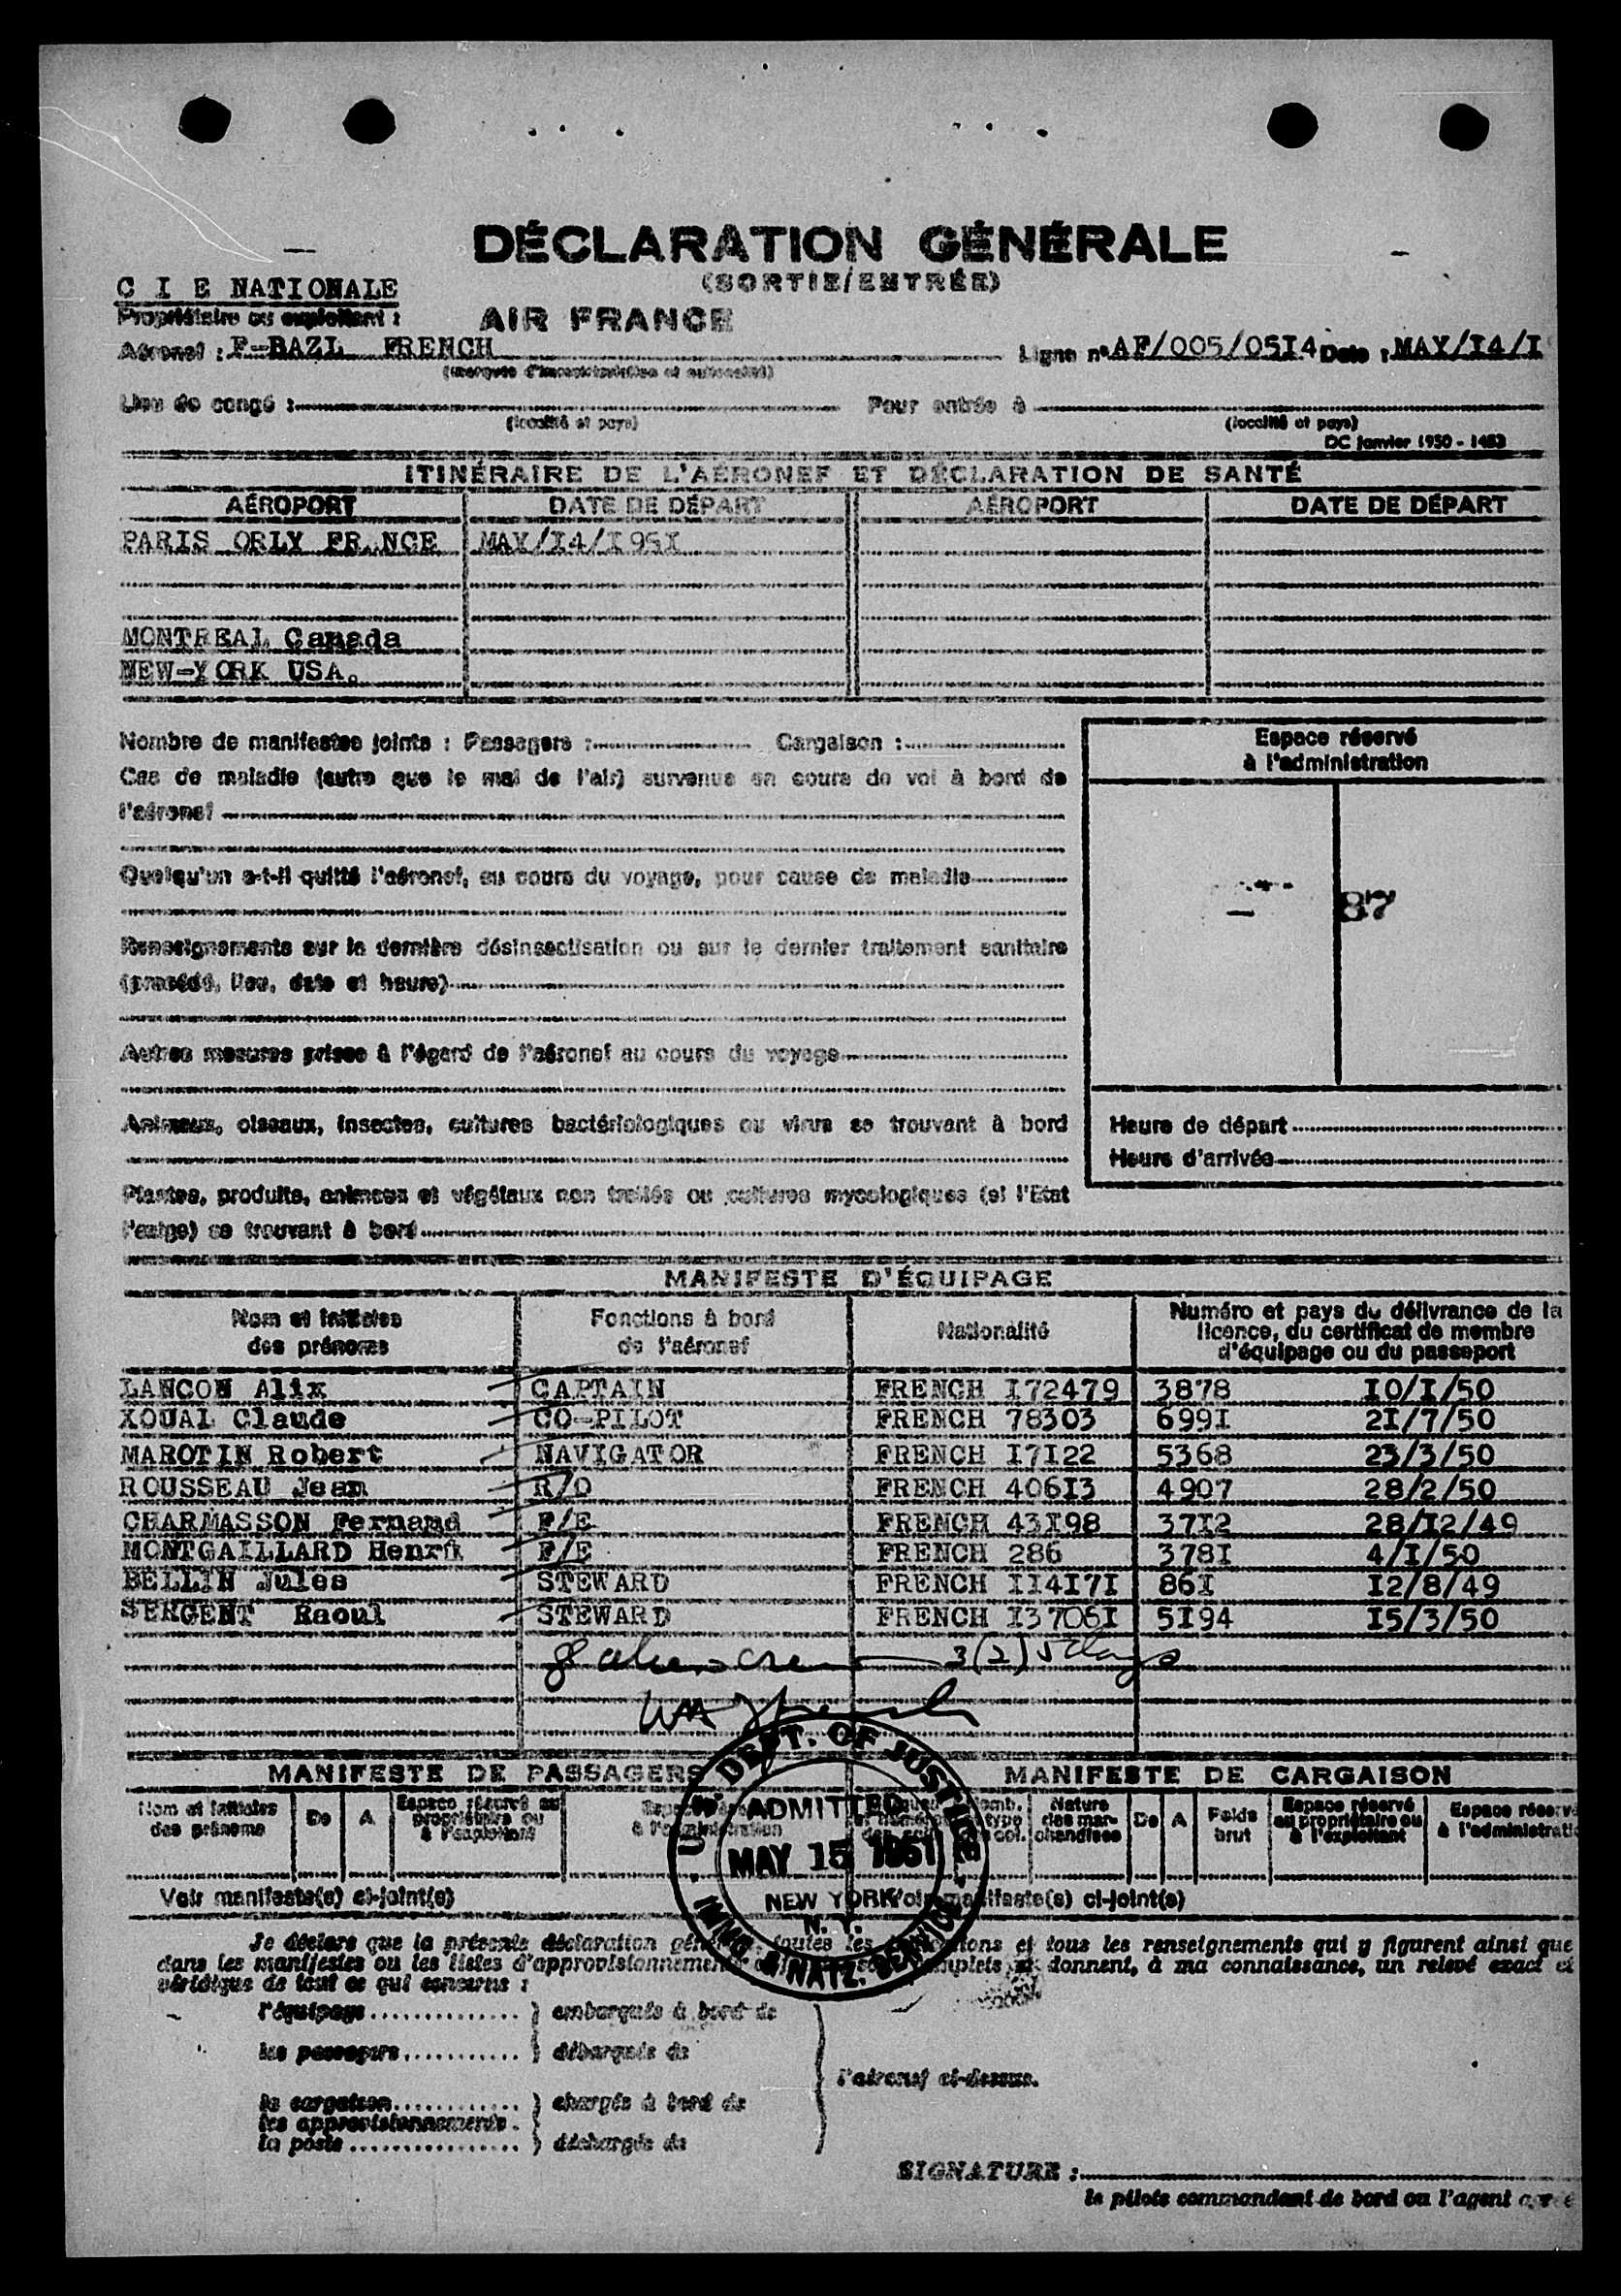 DÉCLARATION GÉNÉRALE
(SORTIE/ENTRÉE)
C I E NATIONALE
Propriétaire ou exploitant : AIR FRANCE
Aéronef : F-BAZL FRENCH Ligne n° AF/005/05I4 Date : MAY/I4/I
(marques d'immatriculation et nationalité)
Lieu de congé : Pour entrée à
(localité et pays) (localité et pays)
DC Janvier 1950 - 1483
ITINÉRAIRE DE L'AÉRONEF ET DÉCLARATION DE SANTÉ
AÉROPORT DATE DE DÉPART AÉROPORT DATE DE DÉPART
PARIS ORLY FRANCE MAY/I4/I95I
MONTREAL Canada
NEW-YORK USA.
Nombre de manifestes joints : Passagers : Cargaison :
Espace réservé
à l'administration
Cas de maladie (autre que le mal de l'air) survenus en cours de vol à bord de
l'aéronef
Quelqu'un a-t-il quitté l'aéronef, au cours du voyage, pour cause de maladie
87
Renseignements sur la dernière désinsectisation ou sur le dernier traitement sanitaire
(procédé, lieu, date et heure)
Autres mesures prises à l'égard de l'aéronef au cours du voyage
Animaux, oiseaux, insectes, cultures bactériologiques ou virus se trouvant à bord
Heure de départ
Heure d'arrivée
Plantes, produits, animaux et végétaux non traités ou cultures mycologiques (si l'Etat
l'exige) se trouvant à bord
MANIFESTE D'ÉQUIPAGE
Nom et initiales des prénoms Fonctions à bord de l'aéronef Nationalité Numéro et pays du délivrance de la licence, du certificat de membre d'équipage ou du passeport
LANCON Alix CAPTAIN FRENCH I72479 3878 IO/I/50
XOUAL Claude CO-PILOT FRENCH 78303 699I 2I/7/50
MAROTIN Robert NAVIGATOR FRENCH I7I22 5368 23/3/50
ROUSSEAU Jean R/O FRENCH 406I3 4907 28/2/50
CHARMASSON Fernand F/E FRENCH 43I98 37I2 28/I2/49
MONTGAILLARD Henri F/E FRENCH 286 378I 4/I/50
BELLIN Jules STEWARD FRENCH II4I7I 86I I2/8/49
SERGENT Raoul STEWARD FRENCH I3706I 5I94 I5/3/50
3(2) 5 days
MANIFESTE DE PASSAGERS MANIFESTE DE CARGAISON
Nom et initiales des prénoms De A Espace réservé au propriétaire ou à l'exploitant à l'administration Nature des marchandises De A Poids brut Espace réservé au propriétaire ou à l'exploitant Espace réservé à l'administratio
Voir manifeste(s) ci-joint(s) Voir manifeste(s) ci-joint(s)
U.S. DEPT. OF JUSTICE
ADMITTED
MAY 15 1951
NEW YORK
N. Y.
IMMG. & NATZ. SERVICE
Je déclare que la présente déclaration toutes les et tous les renseignements qui y figurent ainsi que
dans les manifestes ou les listes d'approvisionnement complets et donnent, à ma connaissance, un relevé exact et
véridique de tout ce qui concerne :
l'équipage embarqués à bord de
les passagers débarqués de
l'aéronef ci-dessus.
la cargaison chargés à bord de
les approvisionnements
la poste déchargés de
SIGNATURE :
le pilote commandant de bord ou l'agent agréé